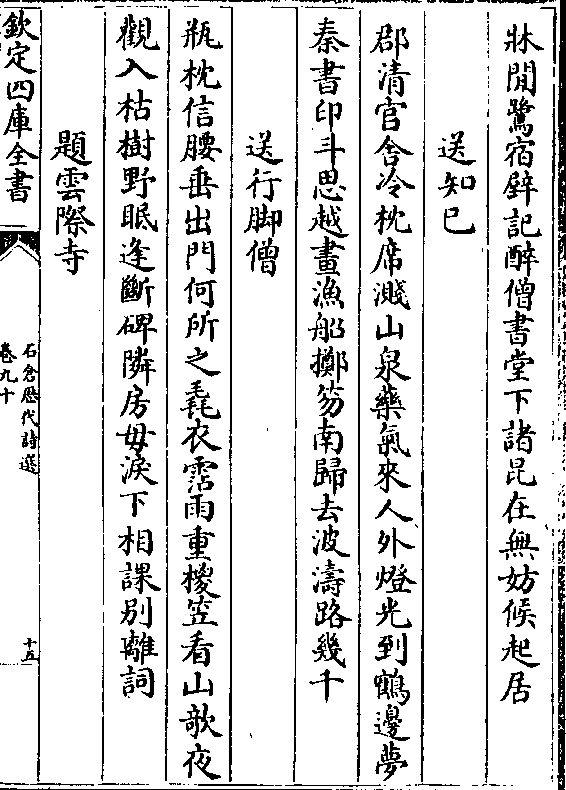 牀閒鷺宿壁記醉僧書堂下諸昆在無妨候起居
送知已
郡清官舍冷枕席濺山泉藥氣來人外燈光到鶴邊夢
秦書印斗思越畫漁船擲笏南歸去波濤路幾千
送行脚僧
瓶枕信腰垂出門何所之毳衣霑雨重椶笠看山欹夜
觀入枯樹野眠逢斷碑隣房毋淚下相課別離詞
題雲際寺
欽定四庫全書
石倉歷代詩選
卷九十
十五